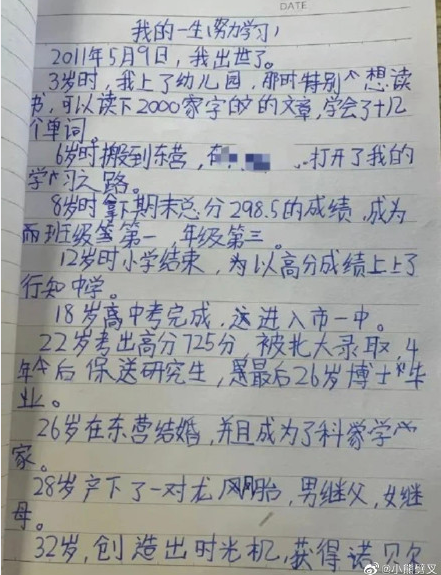 DATE
我的一生(努力学习)
2011年5月9日，我出世了。
3岁时，我上了幼儿园，那时特别个想读
书，可以读下2000家字的的文章,学会了十几
个单词。
6岁时搬到东营，在 . 打开了我的
学习之路。
8岁时拿下期末总分298.5的成绩，成为
班级第一，年级第三。
12岁时小学结束，为以高分成绩上上了
行知中学。
18岁高中考完成，进入市一中。
22岁考出高分725分，被北大录取，4
年后保送研究生，最后26岁博士毕
业。
26岁在东营结婚，并且成为了科学
家。
28岁产下了一对龙凤胎，男继父，女继
母。
32岁，创造出时光机，获得诺贝尔
@小熊剪叉